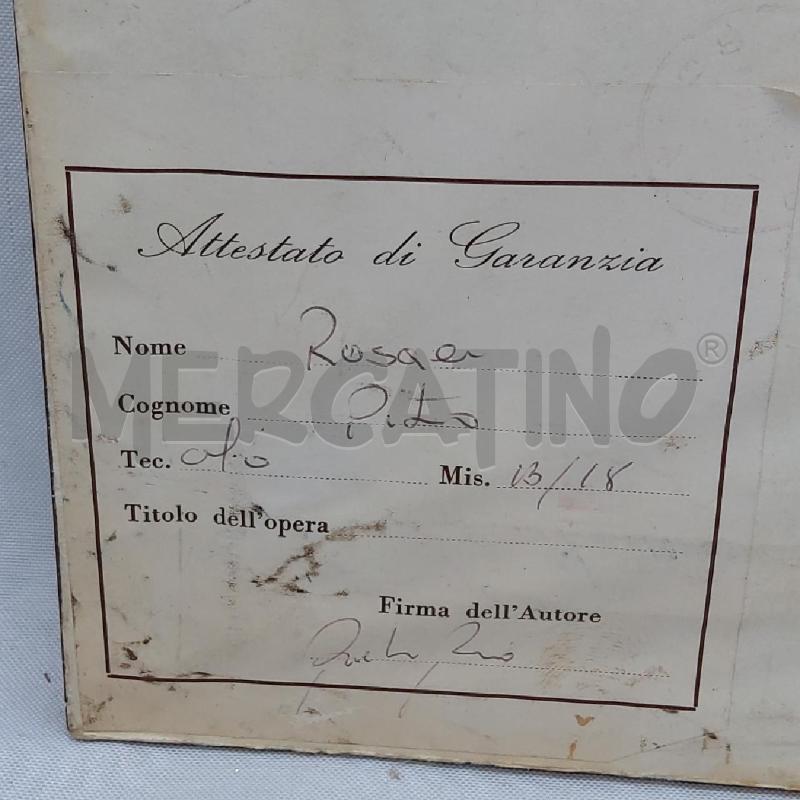 Attestato di Garanzia
Nome Rosaer
MERCATINO®
Cognome Pito
Tec. olio Mis. 13/18
Titolo dell'opera
Firma dell'Autore